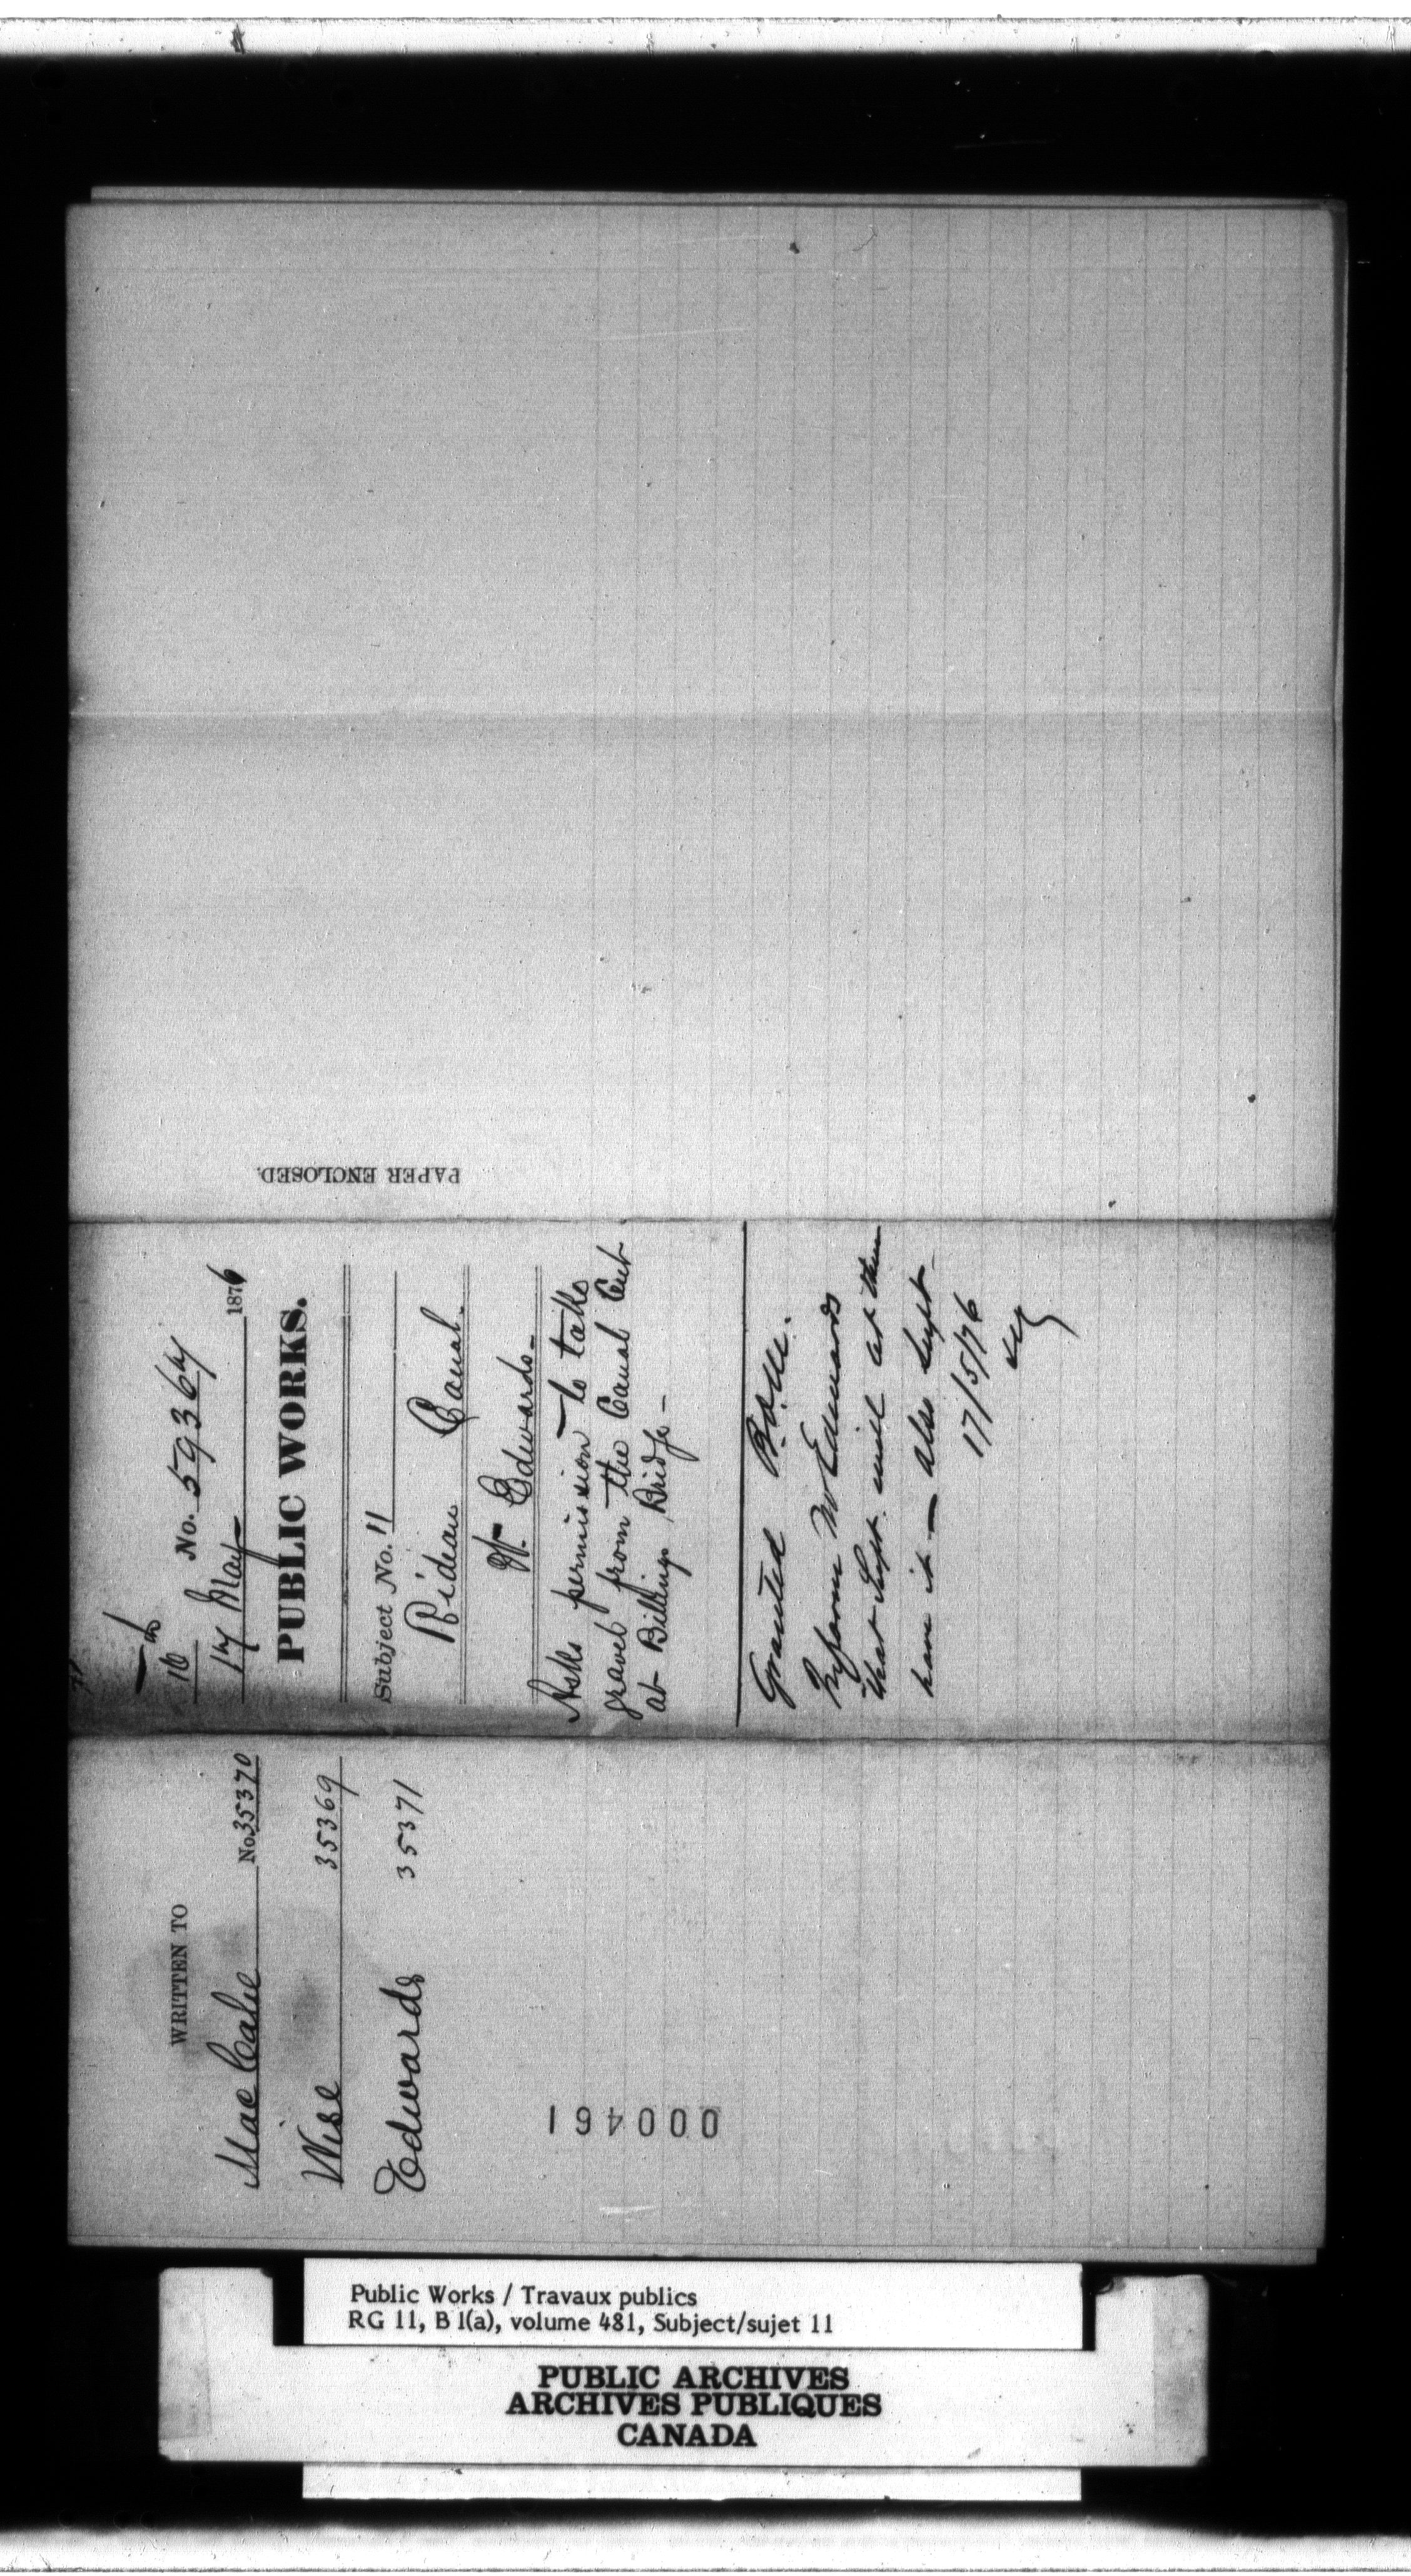 WRITTEN TO
MacCabe No. 35370
Wise 35369
Edwards 35371
000461
16
No. 59364
17 May 1876
PUBLIC WORKS.
Subject No. 11
Rideau Canal.
W. Edwards.
Asks permission to take
gravel from the Canal Cut
at Billings Bridge -
Granted
Inform Mr Edwards
that Supt. will let them
have it — also Supt.
17/5/76
PAPER ENCLOSED.
Public Works / Travaux publics
RG 11, B 1(a), volume 481, Subject/sujet 11
PUBLIC ARCHIVES
ARCHIVES PUBLIQUES
CANADA